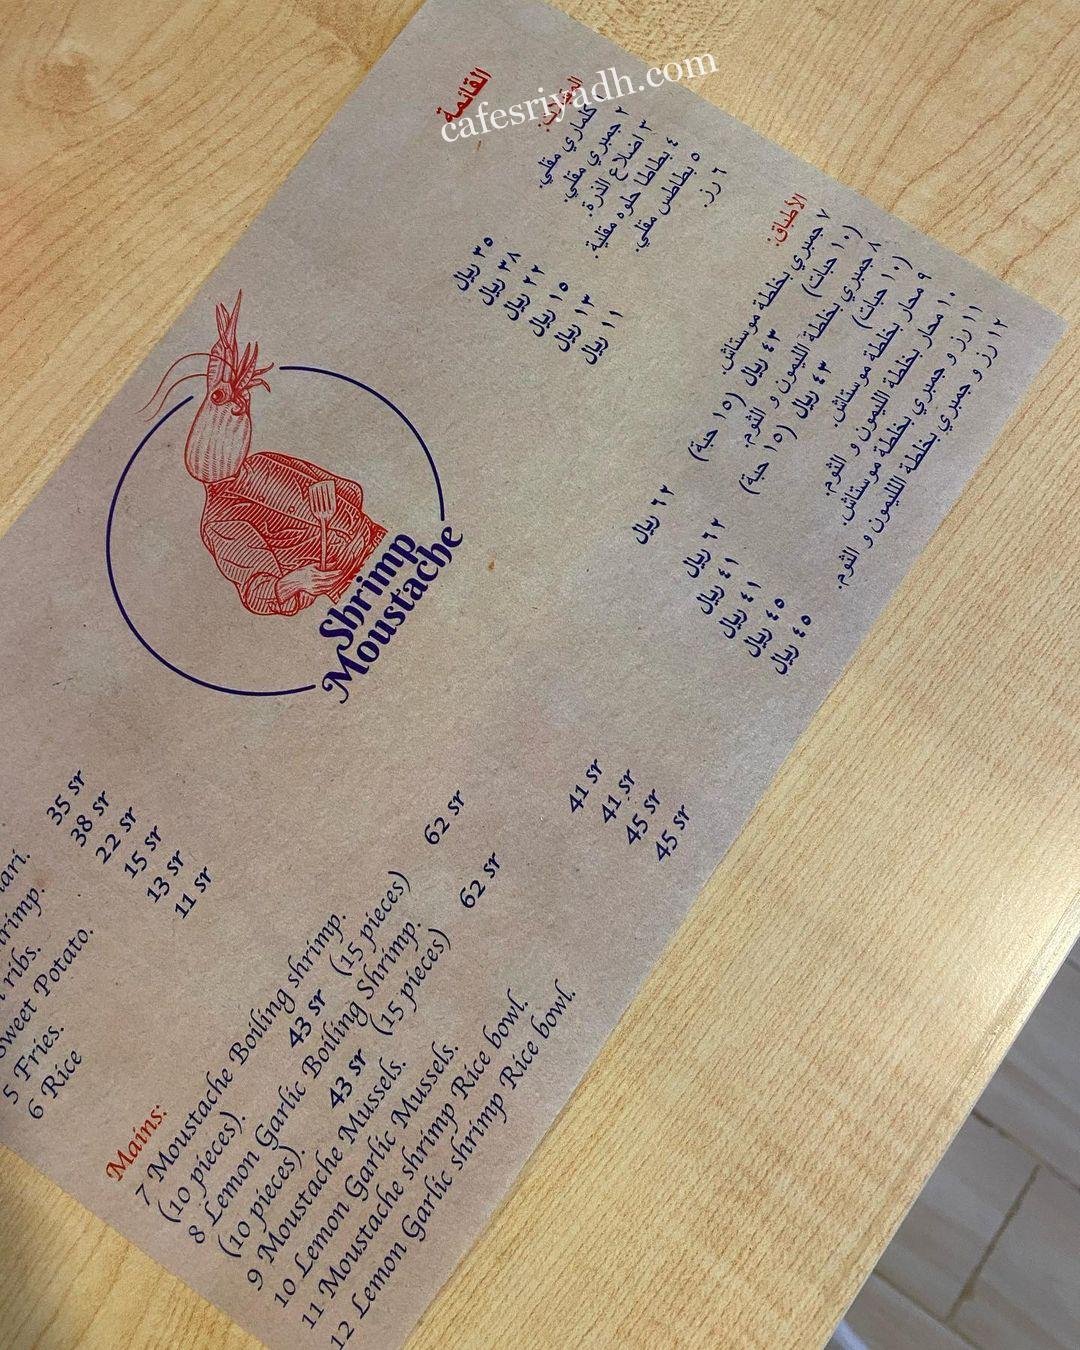 cafesriyadh.com
القائمة
١ كلماري مقلي. ٣٥ ريال
٢ جمبري مقلي. ٣٨ ريال
٣ اضلاع الذرة. ٢٢ ريال
٤ بطاطا حلوه مقلية. ١٥ ريال
٥ بطاطس مقلي. ١٣ ريال
٦ رز. ١١ ريال
الأطباق:
٧ جمبري بخلطة موستاش.
(١٠ حبات) ٤٣ ريال (١٥ حبة) ٦٢ ريال
٨ جمبري بخلطة الليمون و الثوم.
(١٠ حبات) ٤٣ ريال (١٥ حبة) ٦٢ ريال
٩ محار بخلطة موستاش. ٤١ ريال
١٠ محار بخلطة الليمون و الثوم. ٤١ ريال
١١ رز و جمبري بخلطة موستاش. ٤٥ ريال
١٢ رز و جمبري بخلطة الليمون و الثوم. ٤٥ ريال
Shrimp
Moustache
35 sr
38 sr
ribs. 22 sr
Sweet Potato. 15 sr
5 Fries. 13 sr
6 Rice 11 sr
Mains:
7 Moustache Boiling shrimp.
(10 pieces). 43 sr (15 pieces) 62 sr
8 Lemon Garlic Boiling Shrimp.
(10 pieces). 43 sr (15 pieces) 62 sr
9 Moustache Mussels. 41 sr
10 Lemon Garlic Mussels. 41 sr
11 Moustache shrimp Rice bowl. 45 sr
12 Lemon Garlic shrimp Rice bowl. 45 sr